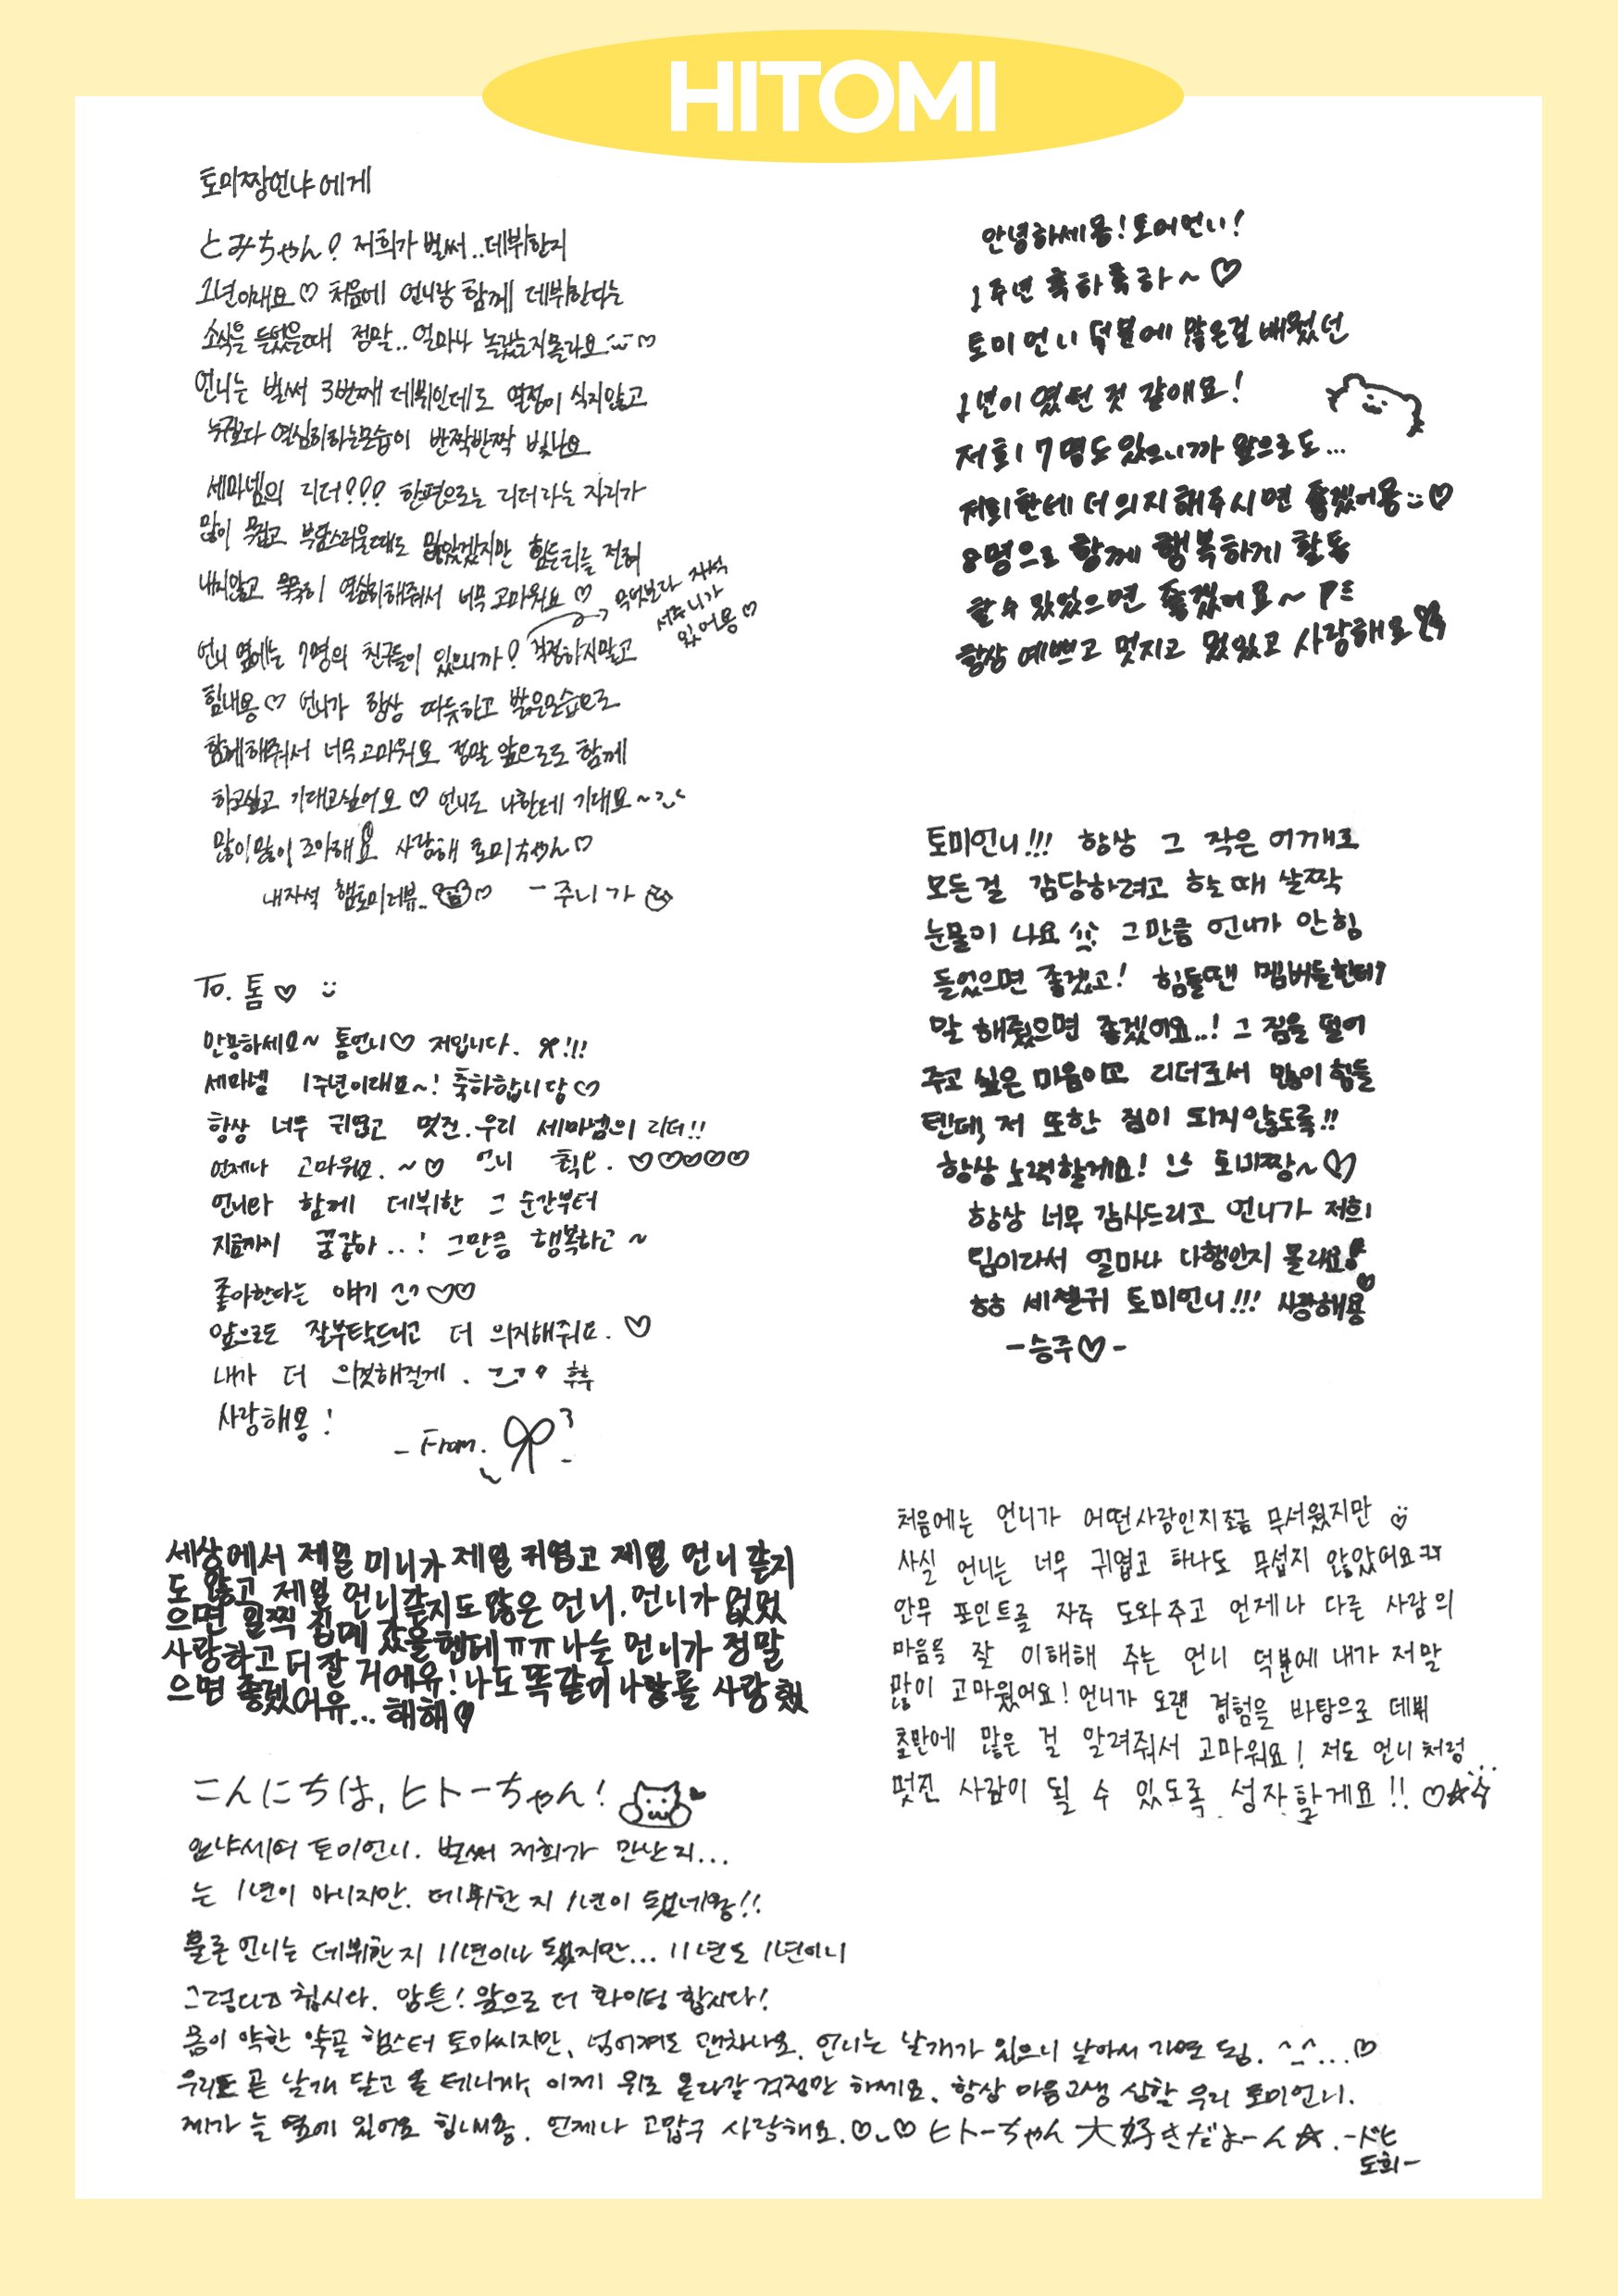 HITOMI
토미짱언냐에게
とみちゃん? 저희가 벌써..데뷔한지
1년이래요♡ 처음에 언니랑 함께 데뷔한다는
소식을 들었을때 정말.. 얼마나 놀랐는지몰라요♡
언니는 벌써 3번째 데뷔인데도 열정이 식지않고
누구보다 열심히하는모습이 반짝반짝 빛나요
세마넴의 리더??? 한편으로는 리더라는 자리가
많이 무겁고 부담스러울때도 많았겠지만 힘든티를 전혀
내지않고 묵묵히 열심히해줘서 너무 고마워요 ♡
무엇보다 자석
서주니가
있어용♡
언니 옆에는 7명의 친구들이 있으니까? 걱정하지말고
힘내용♡ 언니가 항상 따듯하고 밝은모습으로
함께해줘서 너무고마워요 정말 앞으로도 함께
하고싶고 기대고싶어요♡ 언니도 나한테 기대요~
많이많이 조아해요 사랑해 토미ちゃん♡
내자석 햄토미러뷰..♡ -주니가
To. 톰♡ :)
안뇽하세요~ 톰언니♡ 저입니다. !!!
세마넴 1주년이래요~! 축하합니당♡
항상 너무 귀엽고 멋진.우리 세마넴의 리더!!
언제나 고마워요.~♡ 언니 최고. ♡♡♡♡♡
언니와 함께 데뷔한 그 순간부터
지금까지 꿈같아..! 그만큼 행복하고~
좋아한다는 얘기 ♡♡
앞으로도 잘부탁드리고 더 의지해줘요.♡
내가 더 의젓해질게. 후후
사랑해용!
- From.
세상에서 제일 미니가 제일 귀엽고 제일 언니 같지
도 않고 제일 언니같지도않은 언니. 언니가 없었
으면 일찍 집에 갔을텐데ㅠㅠ나는 언니가 정말
사랑하고 더 잘 거에유! 나도 똑같이 나랑를 사랑했
으면 좋겠어유... 해해♡
こんにちは, ヒトーちゃん!
안냐세여 토미언니. 벌써 저희가 만난지...
는 1년이 아니지만. 데뷔한 지 1년이 됐네왕!!
물론 언니는 데뷔한지 11년이나 됐지만... 11년도 1년이니
그렇다고 칩시다. 암튼! 앞으로 더 화이팅 합시다!
몸이 약한 약골 햄스터 토미씨지만, 넘어져도 괜차나요. 언니는 날개가 있으니 날아서 가면 됨. ^_^...♡
우리도 곧 날개 달고 올 테니까, 이제 위로 올라갈 걱정만 하세요. 항상 마음고생 심할 우리 토미언니.
제가 늘 옆에 있어요 힘내용. 언제나 고맙구 사랑해요.♡.♡ ヒトーちゃん大好きだよーん☆.-ドヒ
도희-
안녕하세용! 토미언니!
1주년 축하축하~♡
토미 언니 덕분에 많은걸 배웠던
1년이 였던 것 같애요!
저희 7명도 있으니까 앞으로도...
저희한테 더 의지해주시면 좋겠어용:)♡
8명으로 함께 행복하게 활동
할 수 있었으면 좋겠어요~ PE
항상 예쁘고 멋지고 멌있고 사랑해요
토미언니!!! 항상 그 작은 어깨로
모든걸 감당하려고 할때 살짝
눈물이 나요 그만큼 언니가 안힘
들었으면 좋겠고! 힘들땐 멤버들한테
말 해줬으면 좋겠어요..! 그 짐을 덜어
주고 싶은 마음이고 리더로서 많이힘들
텐데, 저 또한 짐이 되지않도록!!
항상노력할게요! 토미짱~♡
항상 너무 감사드리고 언니가 저희
팀이라서 얼마나 다행인지 몰라요!
ㅎㅎ 세젤귀 토미언니!!! 사랑해용
-승주♡-
처음에는 언니가 어떤사람인지조금 무서웠지만
사실 언니는 너무 귀엽고 하나도 무섭지 않았어요ㅋㅋ
안무 포인트를 자주 도와주고 언제나 다른 사람의
마음을 잘 이해해 주는 언니 덕분에 내가 저말
많이 고마웠어요! 언니가 오랜 경험을 바탕으로 데뷔
초반에 많은 걸 알려줘서 고마워요! 저도 언니처럼
멋진 사람이 될 수 있도록 성자할게요!! ♡☆